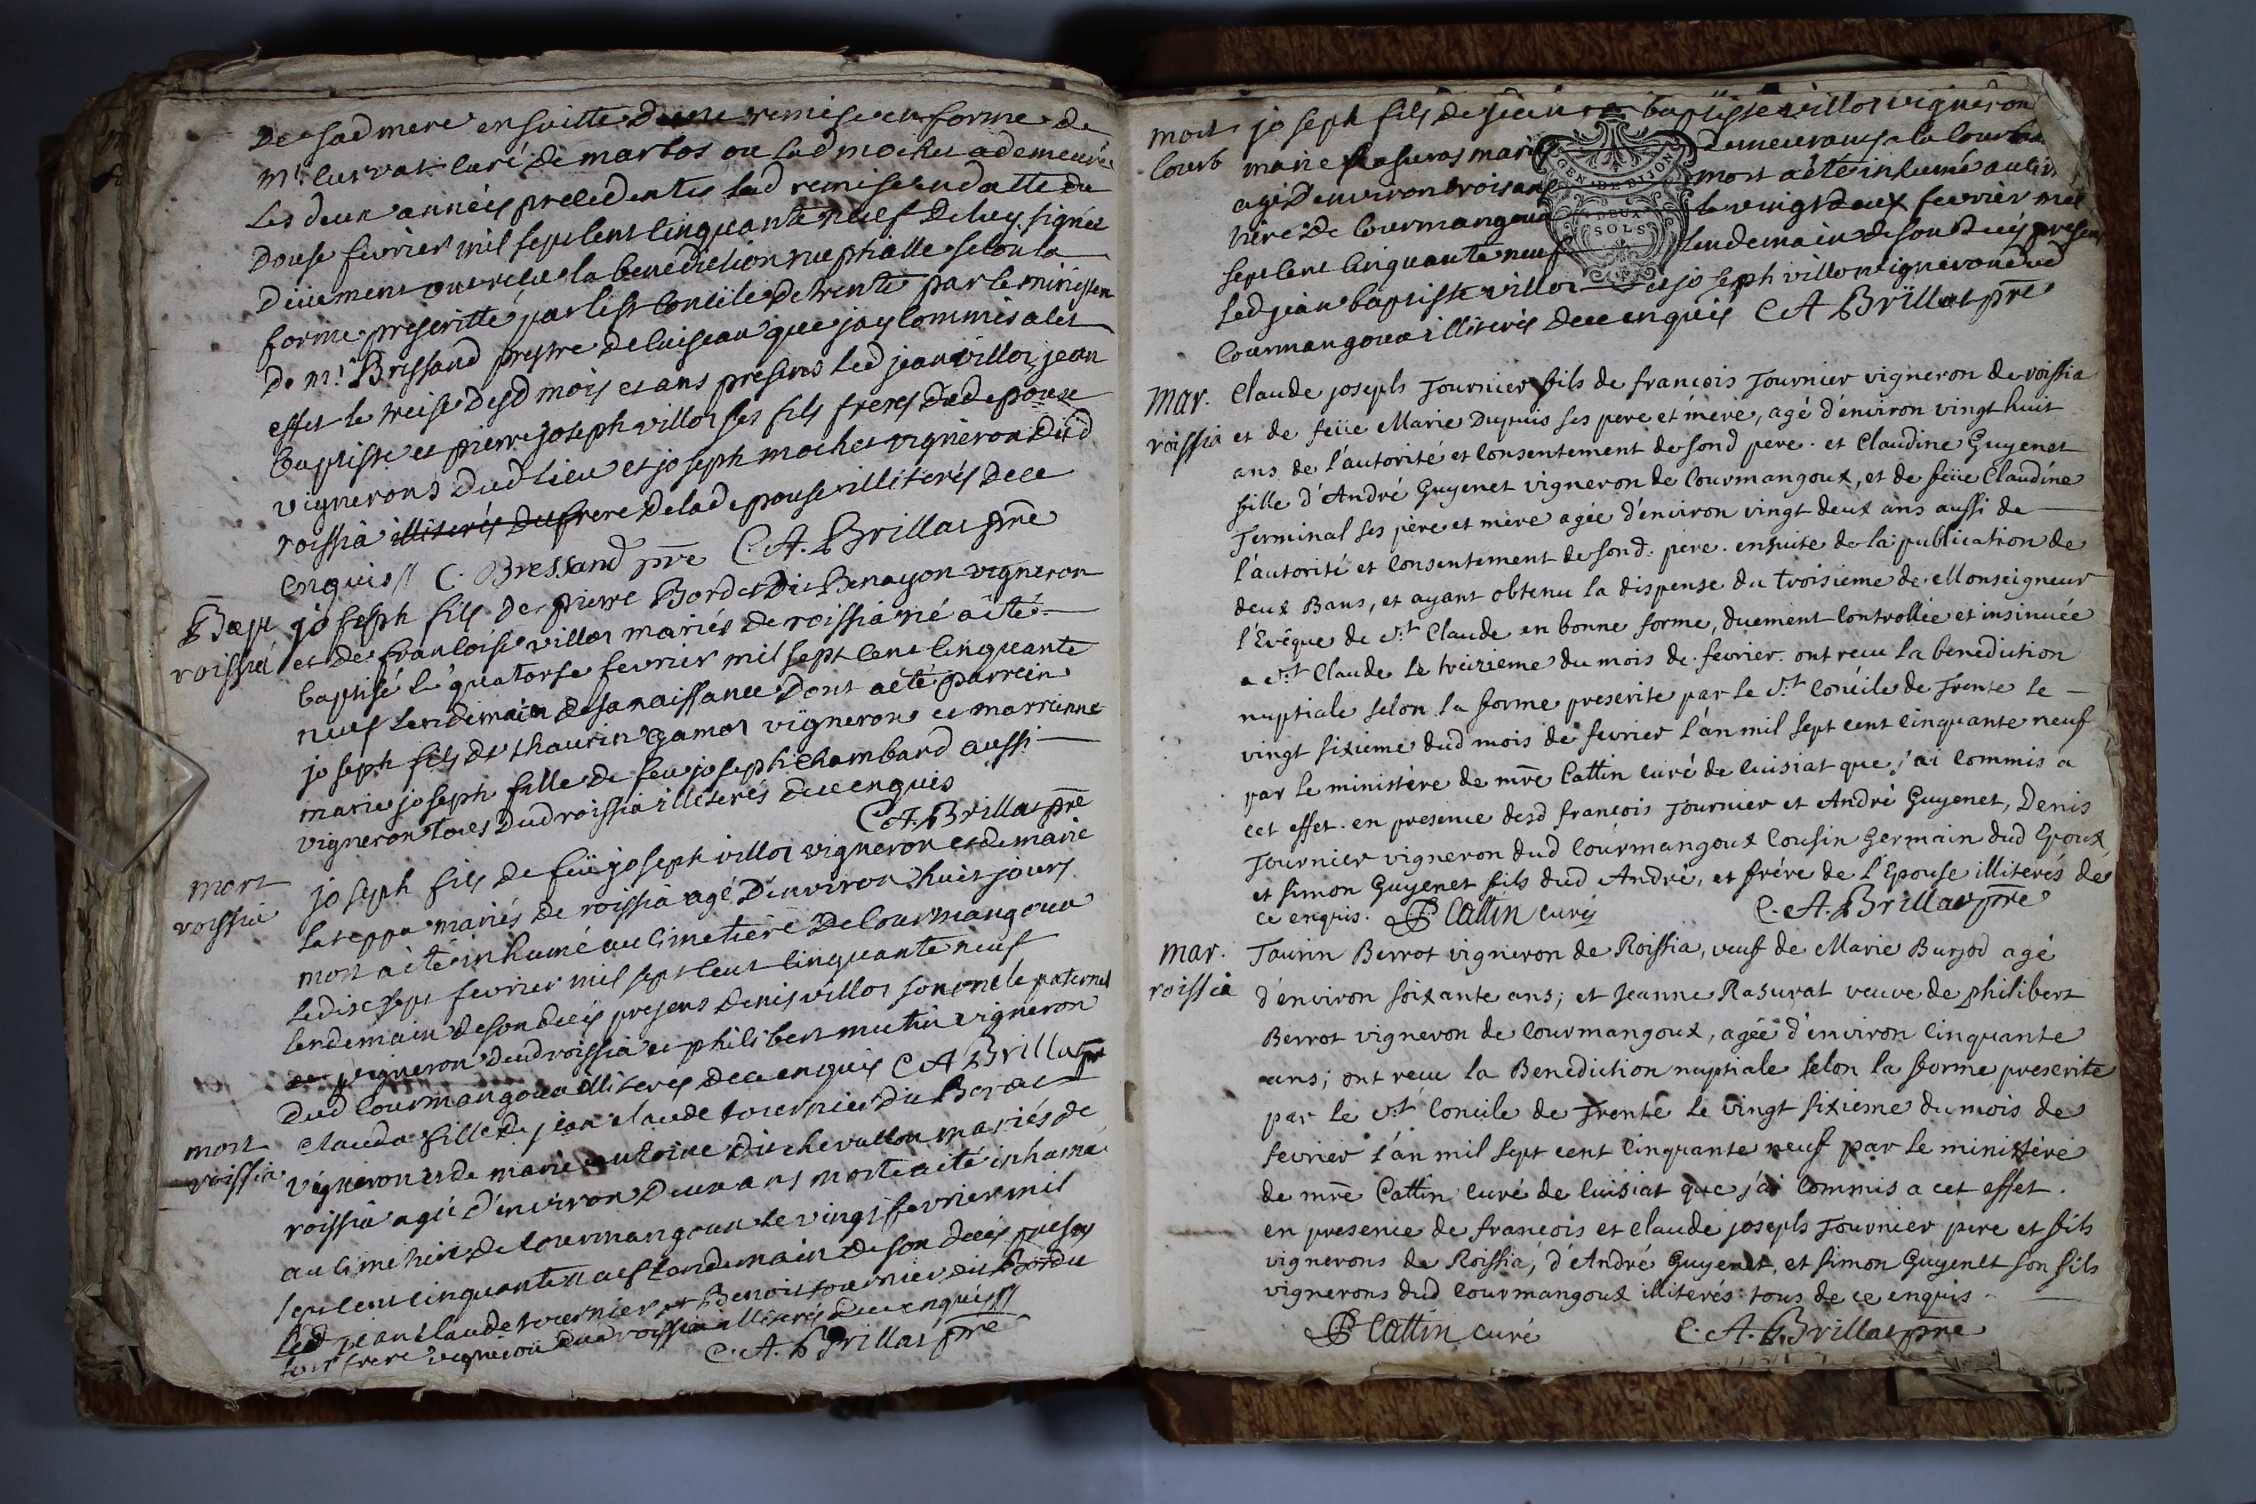 de sad mere ensuitte dune remise en forme de
mr curvat curé de marbos ou lad mochet a demeurée
les deux années precedentes lad remise en datte du
douse fevrier mil sept cent cinquante neuf de luy signée
düement ont recu la benediction nuptialle selon la
forme prescritte par le st concile de trente par le ministere
de mr Bressand prestre de cuiseau que jay commis a cet
effet le treise desd mois et ans presens led jean villot jean
baptiste et pierre joseph villot ses fils freres dud epoux
vignerons dud lieu et joseph mochet vigneron dud
roissia illiterés du frere de lad epouse illiterés de ce
enquis // C. Bressand pre C. A. Brillat pre
Bapt joseph fils de pierre Bordet dit Benayon vigneron
roissia et de francoise villot mariés de roissia né a èté
baptisé le quatorse fevrier mil sept cent cinquante
neuf lendemain de sa naissance dont a èté parrein
joseph fils de thaurin gamot vigneron et marrienne
marie joseph fille de feu joseph chambard aussi
vigneron tous dud roissia illiterés de ce enquis
C. A. Brillat pre
mort joseph fils de feu joseph villot vigneron et de marie
roissia lateppa mariés de roissia agé d'environ huit jours
mort a èté inhumé au cimetière de courmangoux
le dix sept fevrier mil sept cent cinquante neuf
lendemain de son decès presens denis villot son oncle paternel
vigneron dud roissia et philibert mutin vigneron
dud courmangoux illiterés de ce enquis C A Brillat pre
mort claudа fille de jean claude tournier dit Bordet
roissia vigneron et de marie antoine dit chevallon mariés de
roissia agée d'environ deux ans morte a èté inhumé
au cimetiere de courmangoux le vingt fevrier mil
sept cent cinquante neuf lendemain de son decès presens
led jean claude tournier et Benoit tournier dit Bordet
son frere vigneron dud roissia illiterés de ce enquis
C. A. Brillat pre
mort joseph fils de jean baptiste villot vigneron
courb marie rasurat mariés demeurans a la courb
agé d'environ trois ans mort a èté inhumé au cime
tière de courmangoux le vingt deux fevrier mil
sept cent cinquante neuf lendemain de son decès presens
led jean baptiste villot et joseph villot vigneron dud
courmangoux illiterés de ce enquis C A Brillat pre
GEN. DE DIJON
DEUX
SOLS
mar. Claude joseph Tournier fils de francois Tournier vigneron de roissia
roissia et de feüe Marie Dupuis ses pere et mere, agé d'environ vingt huit
ans de l'autorité et consentement de sond pere. et Claudine Guyenet
fille d'André Guyenet vigneron de Courmangoux, et de feüe Claudine
Terminal ses père et mère agée d'environ vingt deux ans aussi de
l'autorité et consentement de sond. pere. ensuite de la publication de
deux Bans, et ayant obtenu la dispense du troisieme de Monseigneur
l'Evêque de St Claude en bonne forme, duement controllée et insinuée
a St Claude le treizieme du mois de fevrier. ont recu la benediction
nuptiale selon la forme prescrite par le St Concile de Trente le
vingt sixieme dud mois de fevrier l'an mil sept cent cinquante neuf
par le ministère de mre Cattin curé de cuisiat que j'ai commis a
cet effet. en presence desd francois Tournier et André Guyenet, Denis
Tournier vigneron dud Courmangoux cousin Germain dud Epoux,
et Simon Guyenet fils dud André, et frére de l'Epouse illiterés de
ce enquis. Cattin curé C. A. Brillat pre
mar. Taurin Berrot vigneron de Roissia, veuf de Marie Burjod agé
roissia d'environ soixante ans; et Jeanne Rasurat veuve de philibert
Berrot vigneron de Courmangoux, agée d'environ Cinquante
ans; ont recu la Benediction nuptiale selon la forme prescrite
par le St Concile de Trente le vingt sixieme du mois de
fevrier l'an mil sept cent Cinquante neuf par le ministère
de mre Cattin curé de cuisiat que j'ai commis a cet effet.
en presence de francois et claude joseph Tournier père et fils
vignerons de Roissia, d'André Guyenet, et Simon Guyenet son fils
vignerons dud Courmangoux illiterés tous de ce enquis.
Cattin curé C. A. Brillat pre